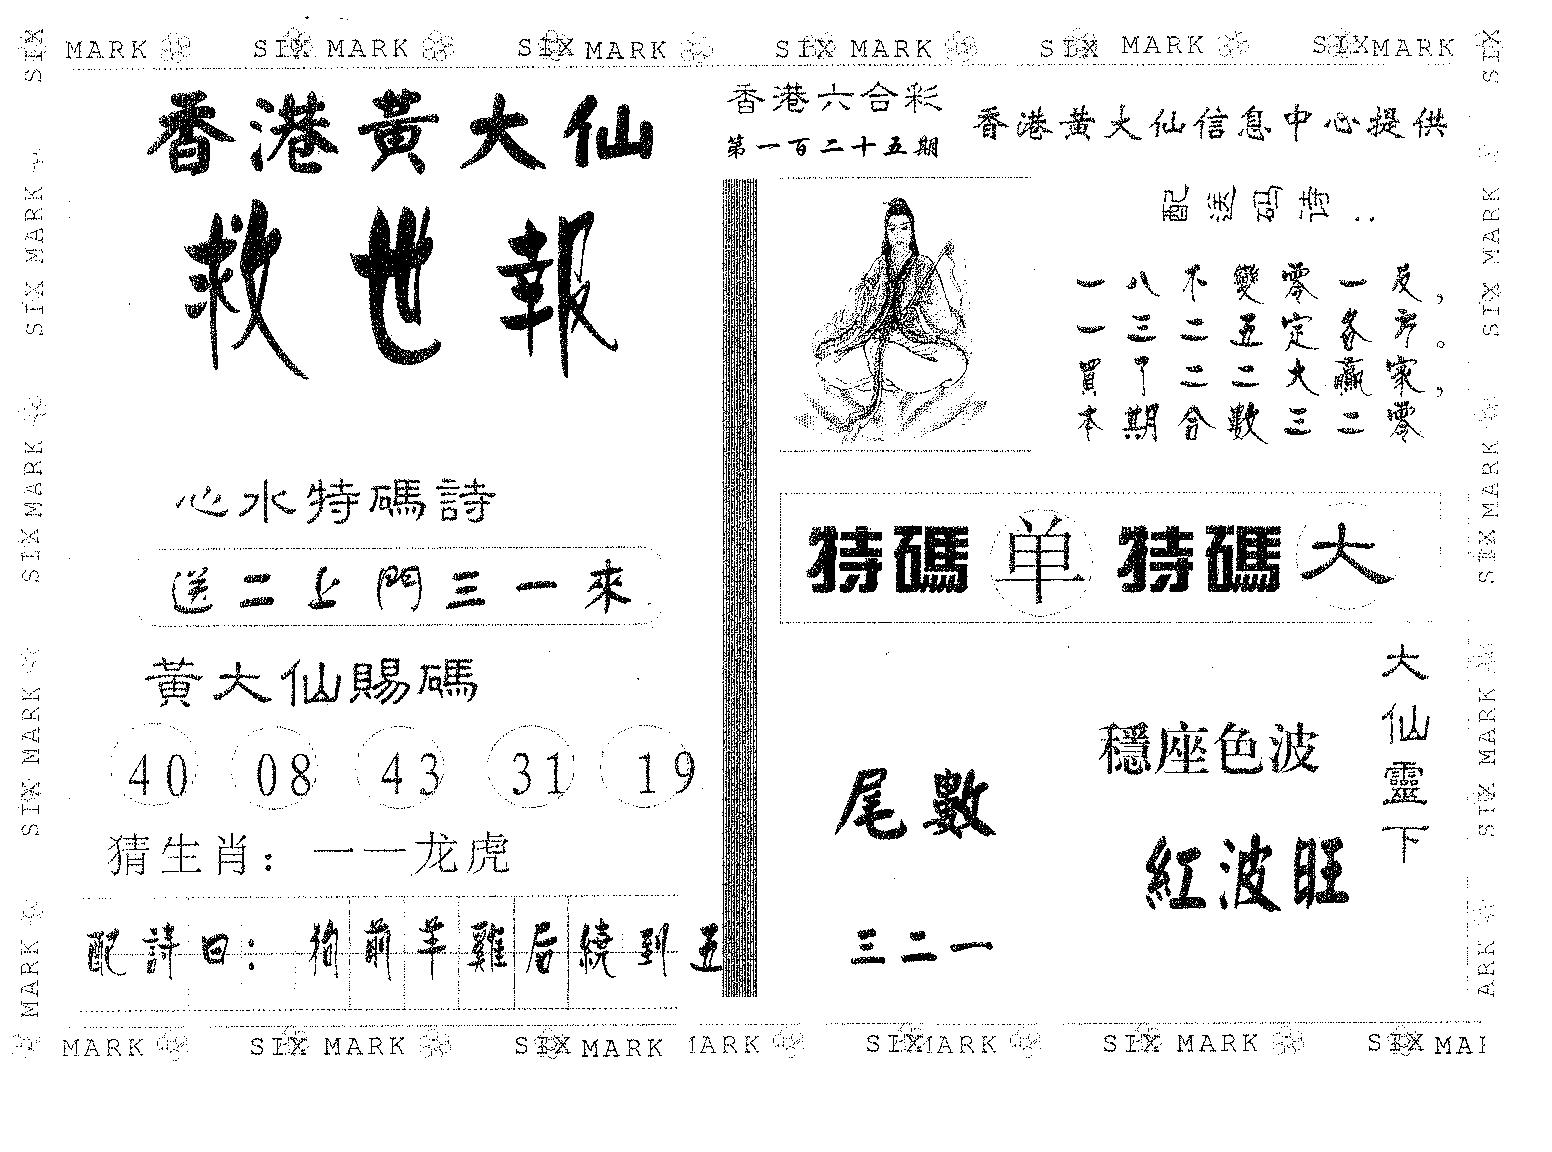 MARK SIX MARK SIX MARK SIX MARK SIX MARK SIX MARK
香港黃大仙
救世報
心水特碼詩
送二上門三一來
黃大仙賜碼
40 08 43 31 19
猜生肖：一一龙虎
配詩曰：狗前羊雞后繞到五
香港六合彩
第一百二十五期
香港黃大仙信息中心提供
配送码诗：
一八不變零一反，
一三二五定各方。
買了二二大贏家，
本期合數三二零
特碼单 特碼大
尾數
三二一
穩座色波
紅波旺
大仙靈下
MARK SIX MARK SIX MARK MARK SIX MARK SIX MARK SIX MAR
SIX MARK SIX MARK SIX MARK SIX MARK
SIX MARK SIX MARK SIX MARK SIX ARK